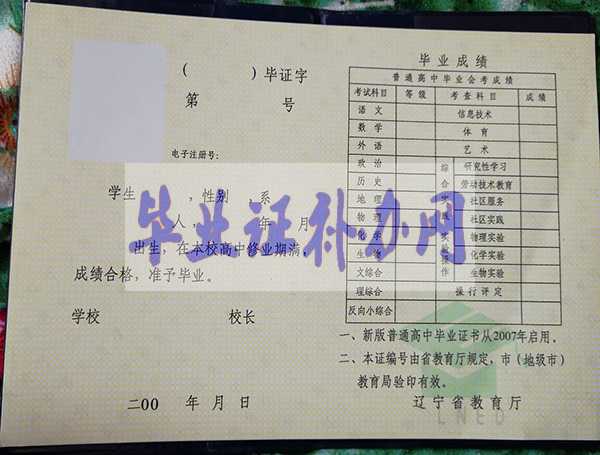 ( ) 毕证字
第 号
电子注册号:
学生 ,性别 ,系
人, 年 月
出生,在本校高中修业期满,
成绩合格,准予毕业。
学校 校长
二00 年 月 日
毕业证补办网
毕业成绩
普通高中毕业会考成绩
考试科目 等级 考查科目 成绩
语文 信息技术
数学 体育
外语 艺术
政治 综 研究性学习
历史 合 劳动技术教育
地理 社区服务
物理 社区实践
化学 物理实验
生物 化学实验
文综合 作 生物实验
理综合 操行评定
反向小综合
一、新版普通高中毕业证书从2007年启用。
二、本证编号由省教育厅规定,市(地级市)
教育局验印有效。
辽宁省教育厅
LNED